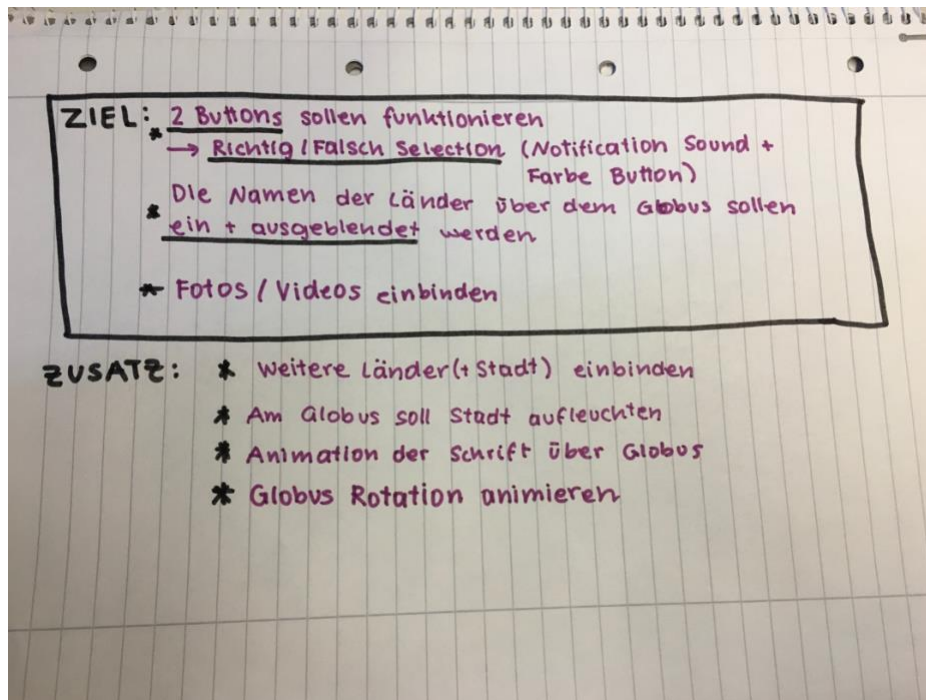 ZIEL: 2 Buttons sollen funktionieren
* → Richtig/Falsch Selection (Notification Sound +
Farbe Button)
* Die Namen der Länder über dem Globus sollen
ein + ausgeblendet werden
* Fotos / Videos einbinden
ZUSATZ: * weitere Länder (+ Stadt) einbinden
* Am Globus soll Stadt aufleuchten
* Animation der Schrift über Globus
* Globus Rotation animieren